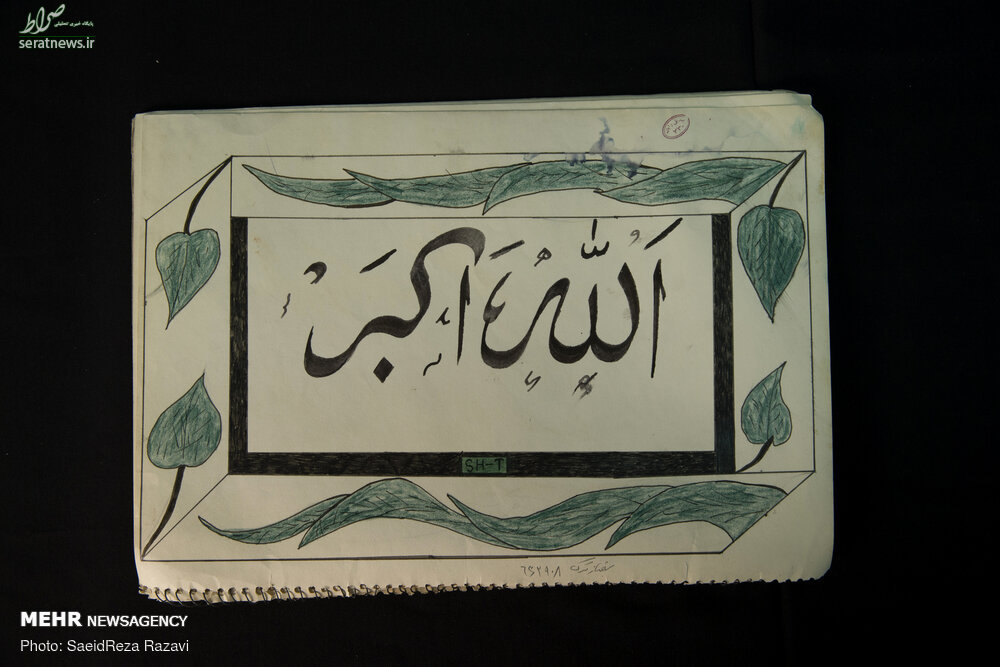 صراط
پایگاه خبری تحلیلی
seratnews.ir
اَللّٰهُ اَکبَرْ
SH-T
MEHR NEWSAGENCY
Photo: SaeidReza Razavi